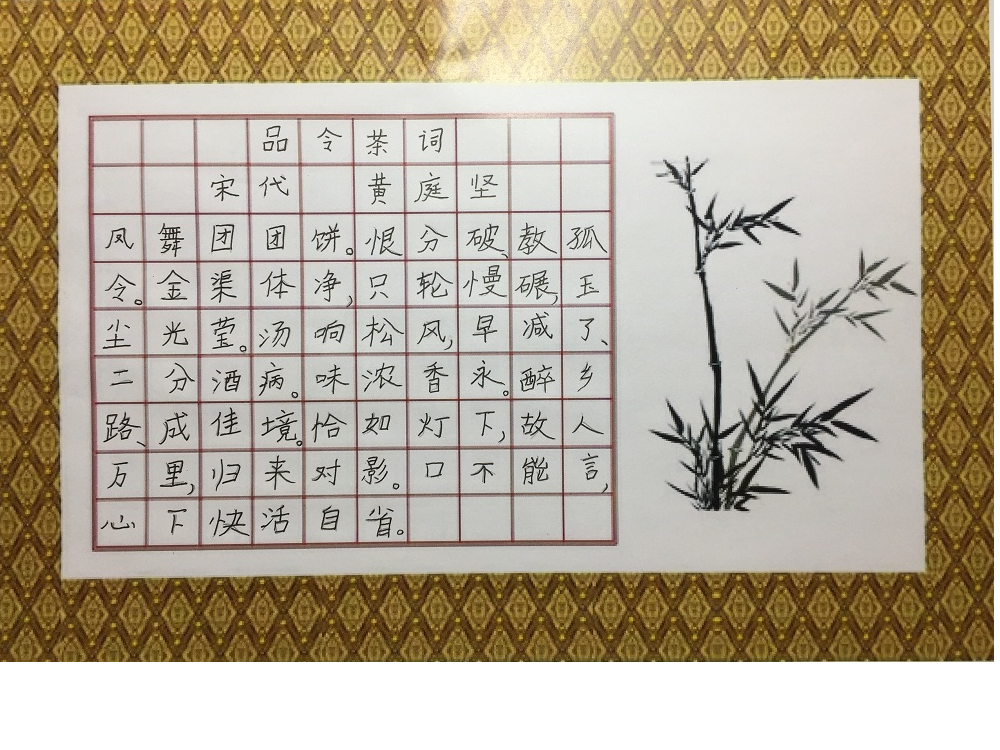 品令茶词
宋代 黄庭坚
凤舞团团饼。恨分破、教孤
令。金渠体净,只轮慢碾,玉
尘光莹。汤响松风,早减了、
二分酒病。味浓香永。醉乡
路、成佳境。恰如灯下,故人
万里,归来对影。口不能言,
心下快活自省。